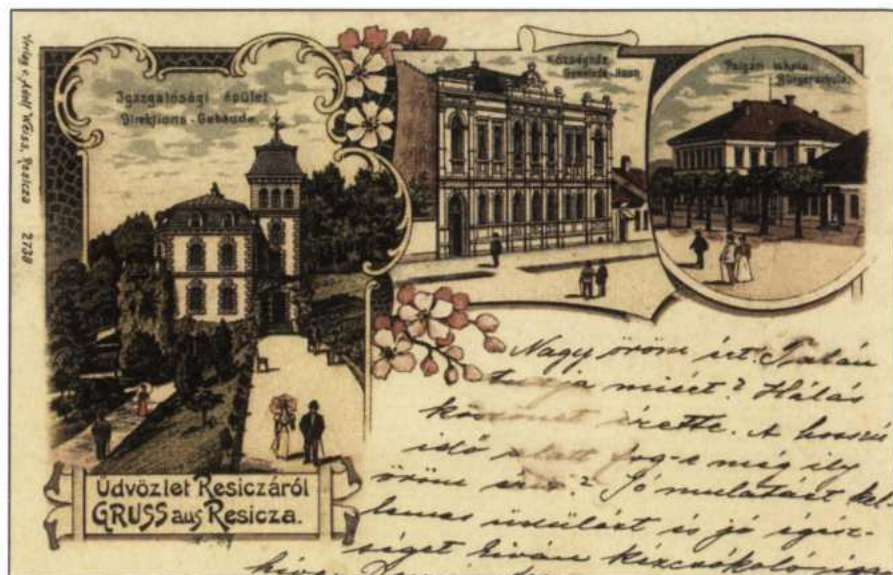 Verlag v. Adolf Weiss, Resicza 2738
Igazgatósági épület
Direktions-Gebäude.
Községház
Gemeinde-Haus
Polgári iskola
Bürgerschule.
Üdvözlet Resiczáról
GRUSS aus Resicza.
Nagy öröm ért! Talán
tudja miért? Hálás
köszönet érette. A hosszú
idő alatt fog-e még ily
öröm érni? Jó mulatást kel-
lemes üdülést és jó egész-
séget kíván kézcsókoló igaz
híve